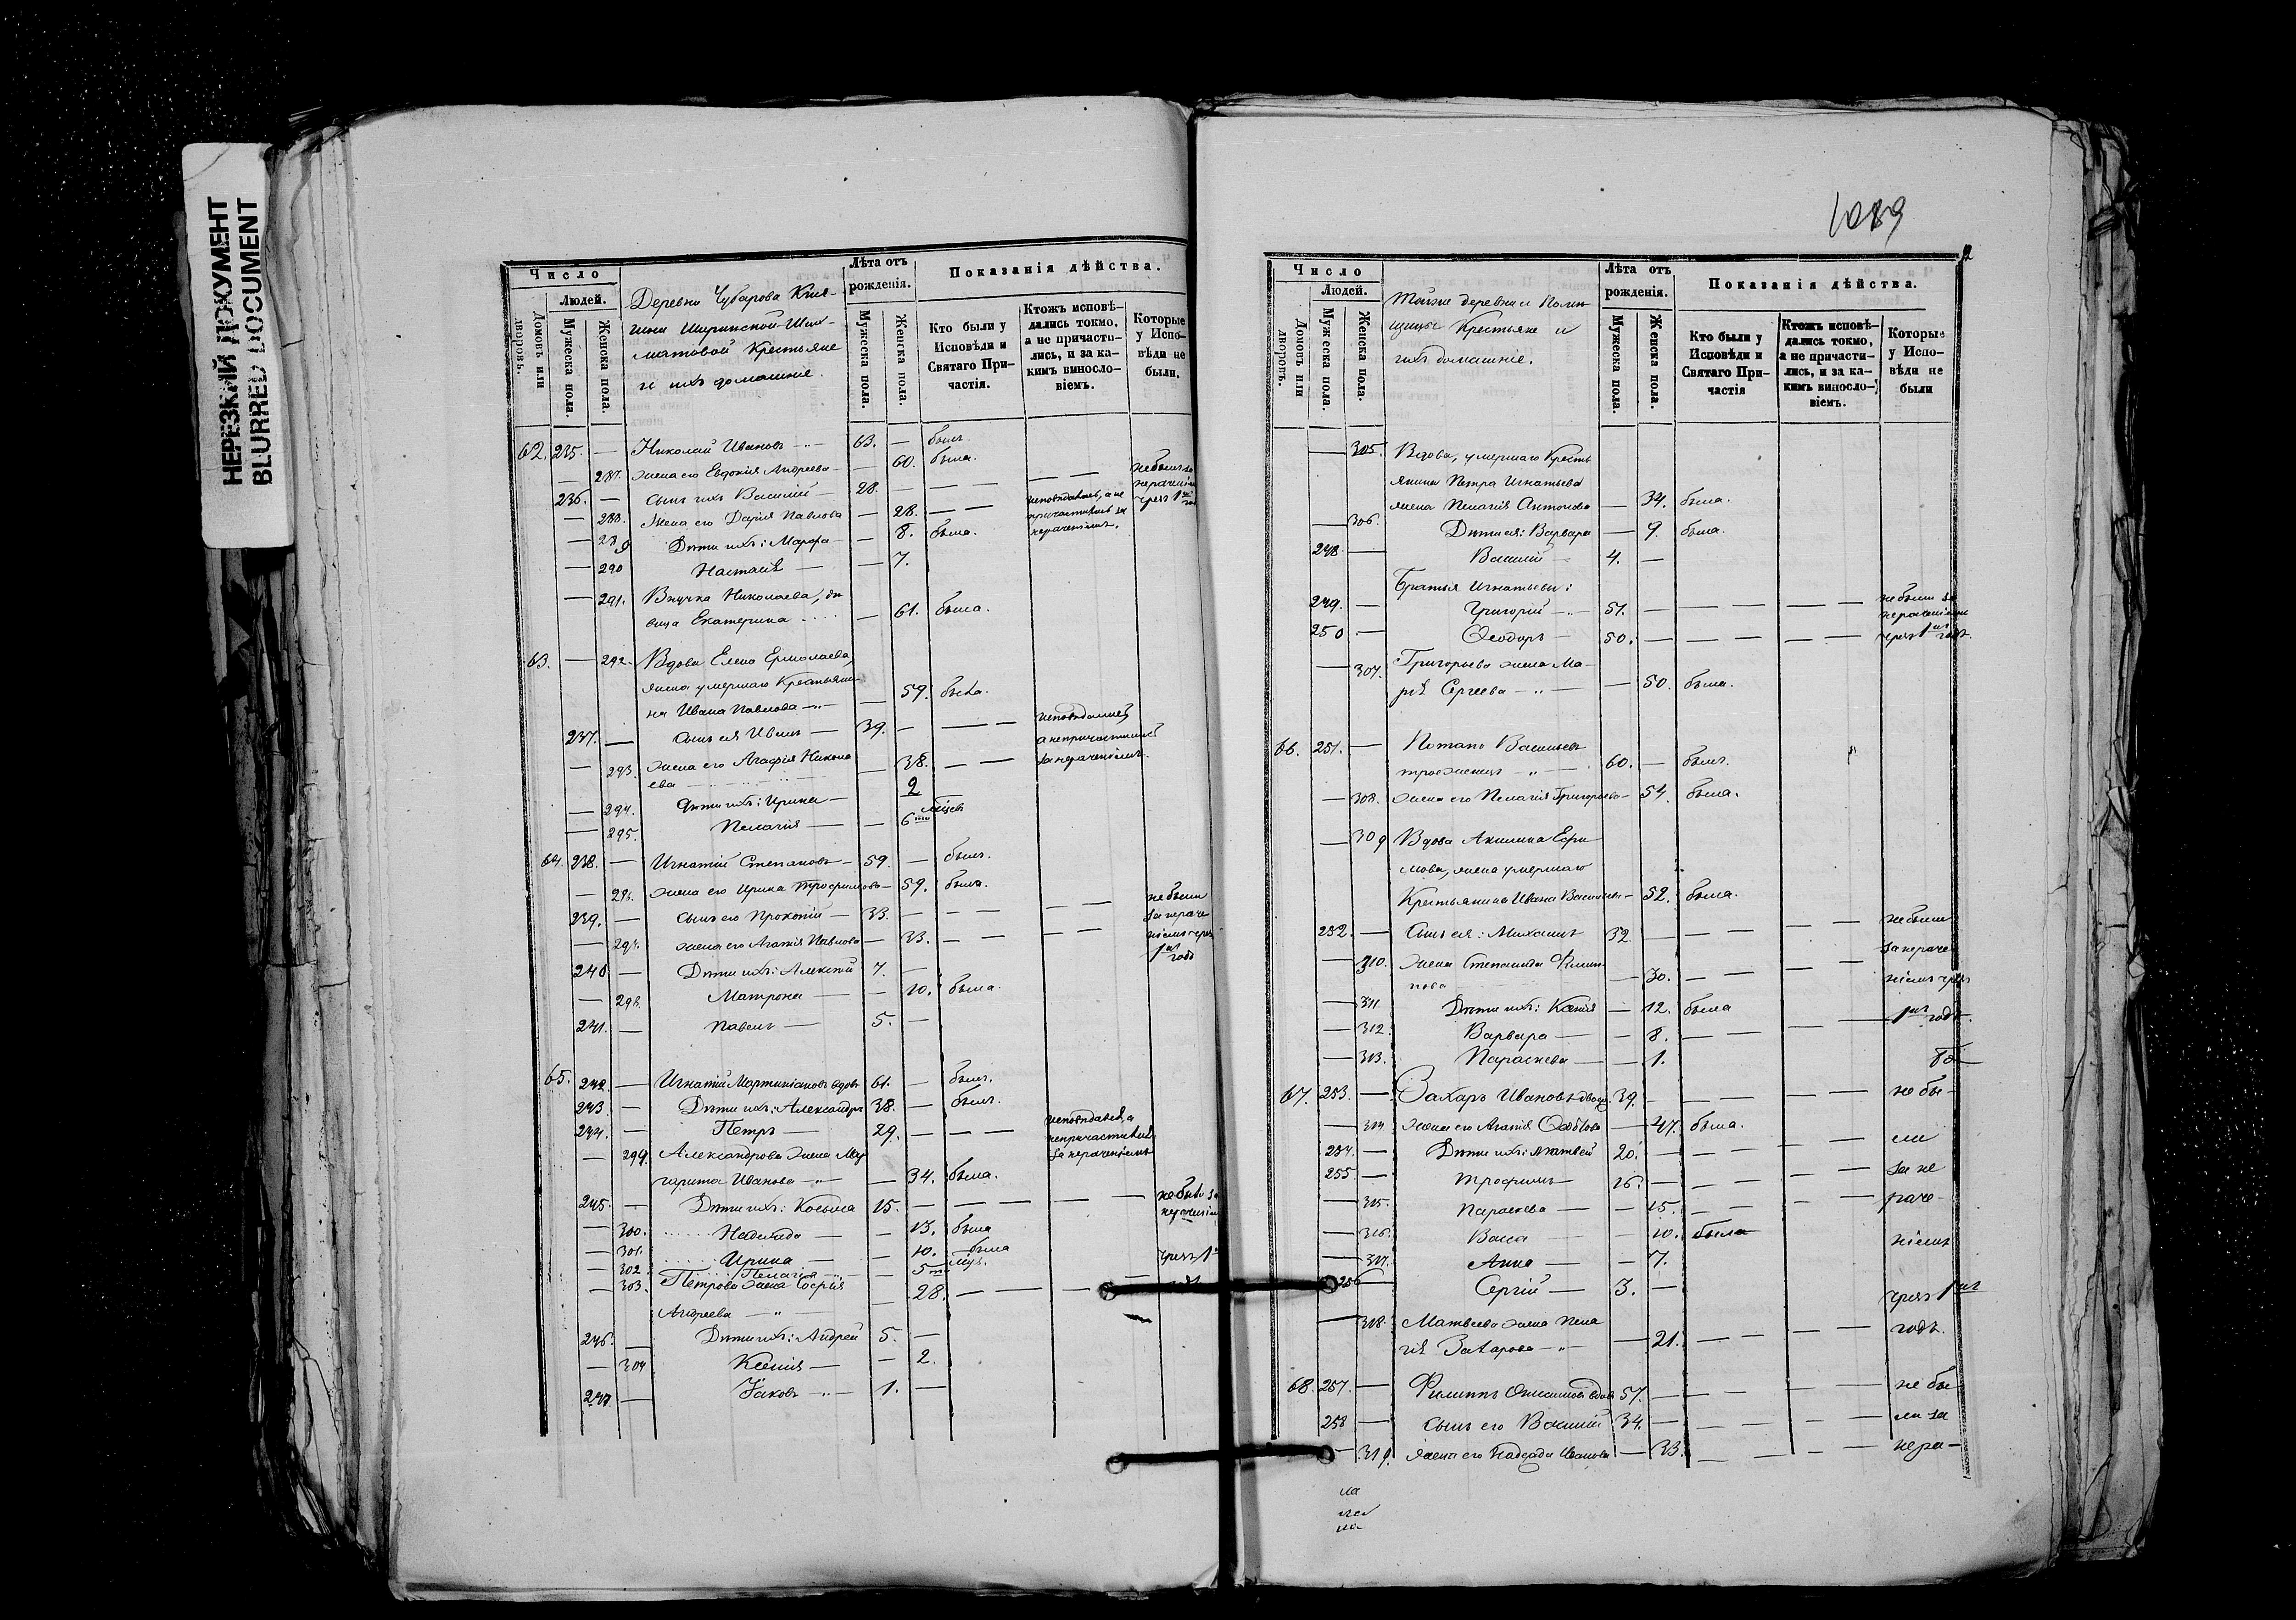 НЕРЕЗКИЙ ДОКУМЕНТ
BLURRED DOCUMENT
Число
Людей.
Домовъ или дворовъ.
Мужеска пола.
Женска пола.
Деревни Чубарова Кня-
гини Ширинской-Ших-
матовой Крестьяне
и ихъ домашніе.
Лѣта отъ
рожденія.
Мужеска пола.
Женска пола.
Показанія дѣйства.
Кто были у
Исповѣди и
Святаго При-
частія.
Ктожъ исповѣ-
дались токмо,
а не причасти-
лись, и за ка-
кимъ виносло-
віемъ.
Которые
у Испо-
вѣди не
были.
62. 235. — Николай Ивановъ —"— 63. — былъ
— 287. жена его Евдокія Андреева — — 60. была.
236. — сынъ ихъ Василій — 28. — — — — — не былъ за нераченіемъ чрезъ 1нъ годъ
— 288. Жена его Дарія Павлова — 28. — — исповѣдалась, а не причастилась за нераченіемъ.
— 289 Дѣти ихъ: Марфа — — 8. была.
— 290 Настасія — — 7.
— 291. Внучка Николаева, дѣ-
вица Екатерина . . . . — 61. была.
63. — 292. Вдова Елена Ермолаева,
жена умершаго Крестьяни-
на Ивана Павлова —"— — 59. была.
237. — сынъ ея Иванъ — 39. — — — исповѣдались,
а непричастились
за нераченіемъ.
— 293. жена его Агафія Никола
ева — — 38. — —
— 294. Дѣти ихъ: Ирина — 2
— 295. Пелагія — — 6ти мѣсяц.
64. 238. — Игнатій Степановъ — 59. — былъ.
— 296. жена его Ирина Трофимова — 59. была.
239. — сынъ его Прокопій — 33. — — — — — не были
за нераче
ніемъ чрезъ
1нъ годъ
— 297. жена его Агапія Павлова — 33. — — — —
240 — Дѣти ихъ: Алексѣй 7. —
— 298. Матрона — — 10. была.
241. — Павелъ — 5. —
65. 242. — Игнатій Мартиніановъ вдовъ 61. — былъ.
243 — Дѣти ихъ: Александръ 38. — былъ.
244. — Петръ — 29. — — — исповѣдался, а
непричастился
за нераченіемъ
— 299. Александрова жена Мар
гарита Иванова —"— — 34. была.
245. — Дѣти ихъ: Косьма 15. — — — — — не былъ за
нераченіем
— 300. Надежда — — 13. была
— 301. Ирина — — 10. была
чрезъ 1нъ
— 302. Пелагія — — 5ти мѣс.
— 303. Петрова жена Софія
Андреева —"— 28. — — — —
246. — Дѣти ихъ: Андрей 5. —
— 304 Ксенія — — 2.
247 — Іаковъ —"— 1. —
1089
Число
Людей.
Домовъ или дворовъ.
Мужеска пола.
Женска пола.
Тойже деревни и Помѣ-
щицы Крестьяне и
ихъ домашніе.
Лѣта отъ
рожденія.
Мужеска пола.
Женска пола.
Показанія дѣйства.
Кто были у
Исповѣди и
Святаго При-
частія
Ктожъ исповѣ-
дались токмо,
а не причасти-
лись, и за ка-
кимъ винослo-
віемъ.
Которые
у Испо-
вѣди не
были
— 305. Вдова, умершаго Кресть
янина Петра Игнатьева
жена Пелагія Антонова — 34. была.
— 306. Дѣти ея: Варвара — 9. была.
248 — Василій — 4. —
Братья Игнатьевы:
249. — Григорій —"— 51. — — — — — — не были за
нераченіемъ
чрезъ 1нъ годъ.
250. — Ѳеодоръ — 50. — — — — —
— 307. Григорьева жена Ма-
рія Сергеева —"— — 50. была.
66. 251. — Потапъ Васильевъ
троеженецъ —"— 60. — былъ.
— 308. жена его Пелагія Григорьева — 54. была.
— 309 Вдова Акилина Ефи
мова, жена умершаго
Крестьянина Ивана Васильева — 52. была.
252. — Сынъ ея: Михаилъ 32. — — — — — не были
за нераче
ніемъ чрезъ
1нъ годъ.
— 310. жена Степанида Филип-
пова — 30. — — — —
— 311. Дѣти ихъ: Ксенія — 12. была
— 312 Варвара — — 8. — — —
— 313. Параскева — — 1.
67. 253. — Захаръ Ивановъ двоеж. 39. — — — — — не бы-
— 314 жена его Агапія — 47. была.
ли
254. — Дѣти ихъ: Матвей 20. — — — — —
255 — Трофимъ — 16. — — — — — за не
— 315. Параскева — — 15. — — — — раче-
— 316. Васса — — 10. была
ніемъ
— 317. Анна — — 7.
256 — Сергій — 3. —
чрезъ 1нъ
— 318. Матвеева жена Пела
гія Захарова —"— — 21. — — — —
годъ.
68. 257. — Филиппъ Онисимовъ вдовъ 57. — — — — — не бы
258 — сынъ его Василій 34. — — — — — ли за
— 319. жена его Надежда Иванова — 33. — — — — нера-